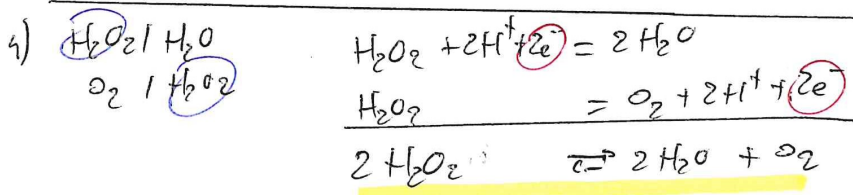 4) H₂O₂ / H₂O H₂O₂ + 2H⁺ + 2e⁻ = 2 H₂O
O₂ / H₂O₂ H₂O₂ = O₂ + 2H⁺ + 2e⁻
2 H₂O₂ ⇄ 2 H₂O + O₂